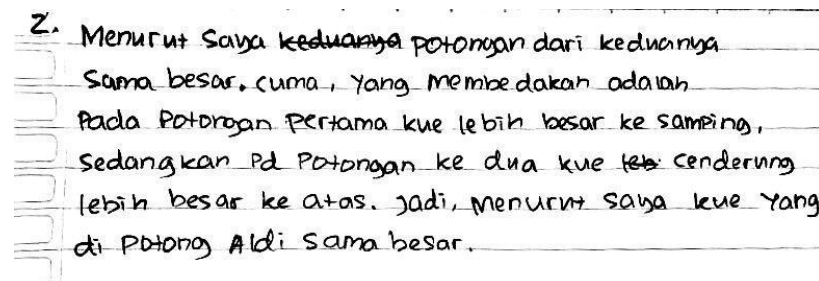 2. Menurut Saya keduanya potongan dari keduanya
Sama besar. cuma, yang membedakan adalah
Pada potongan pertama kue lebih besar ke samping,
Sedangkan Pd Potongan ke dua kue leb cenderung
lebih besar ke atas. Jadi, menurut saya kue yang
di potong Aldi sama besar.